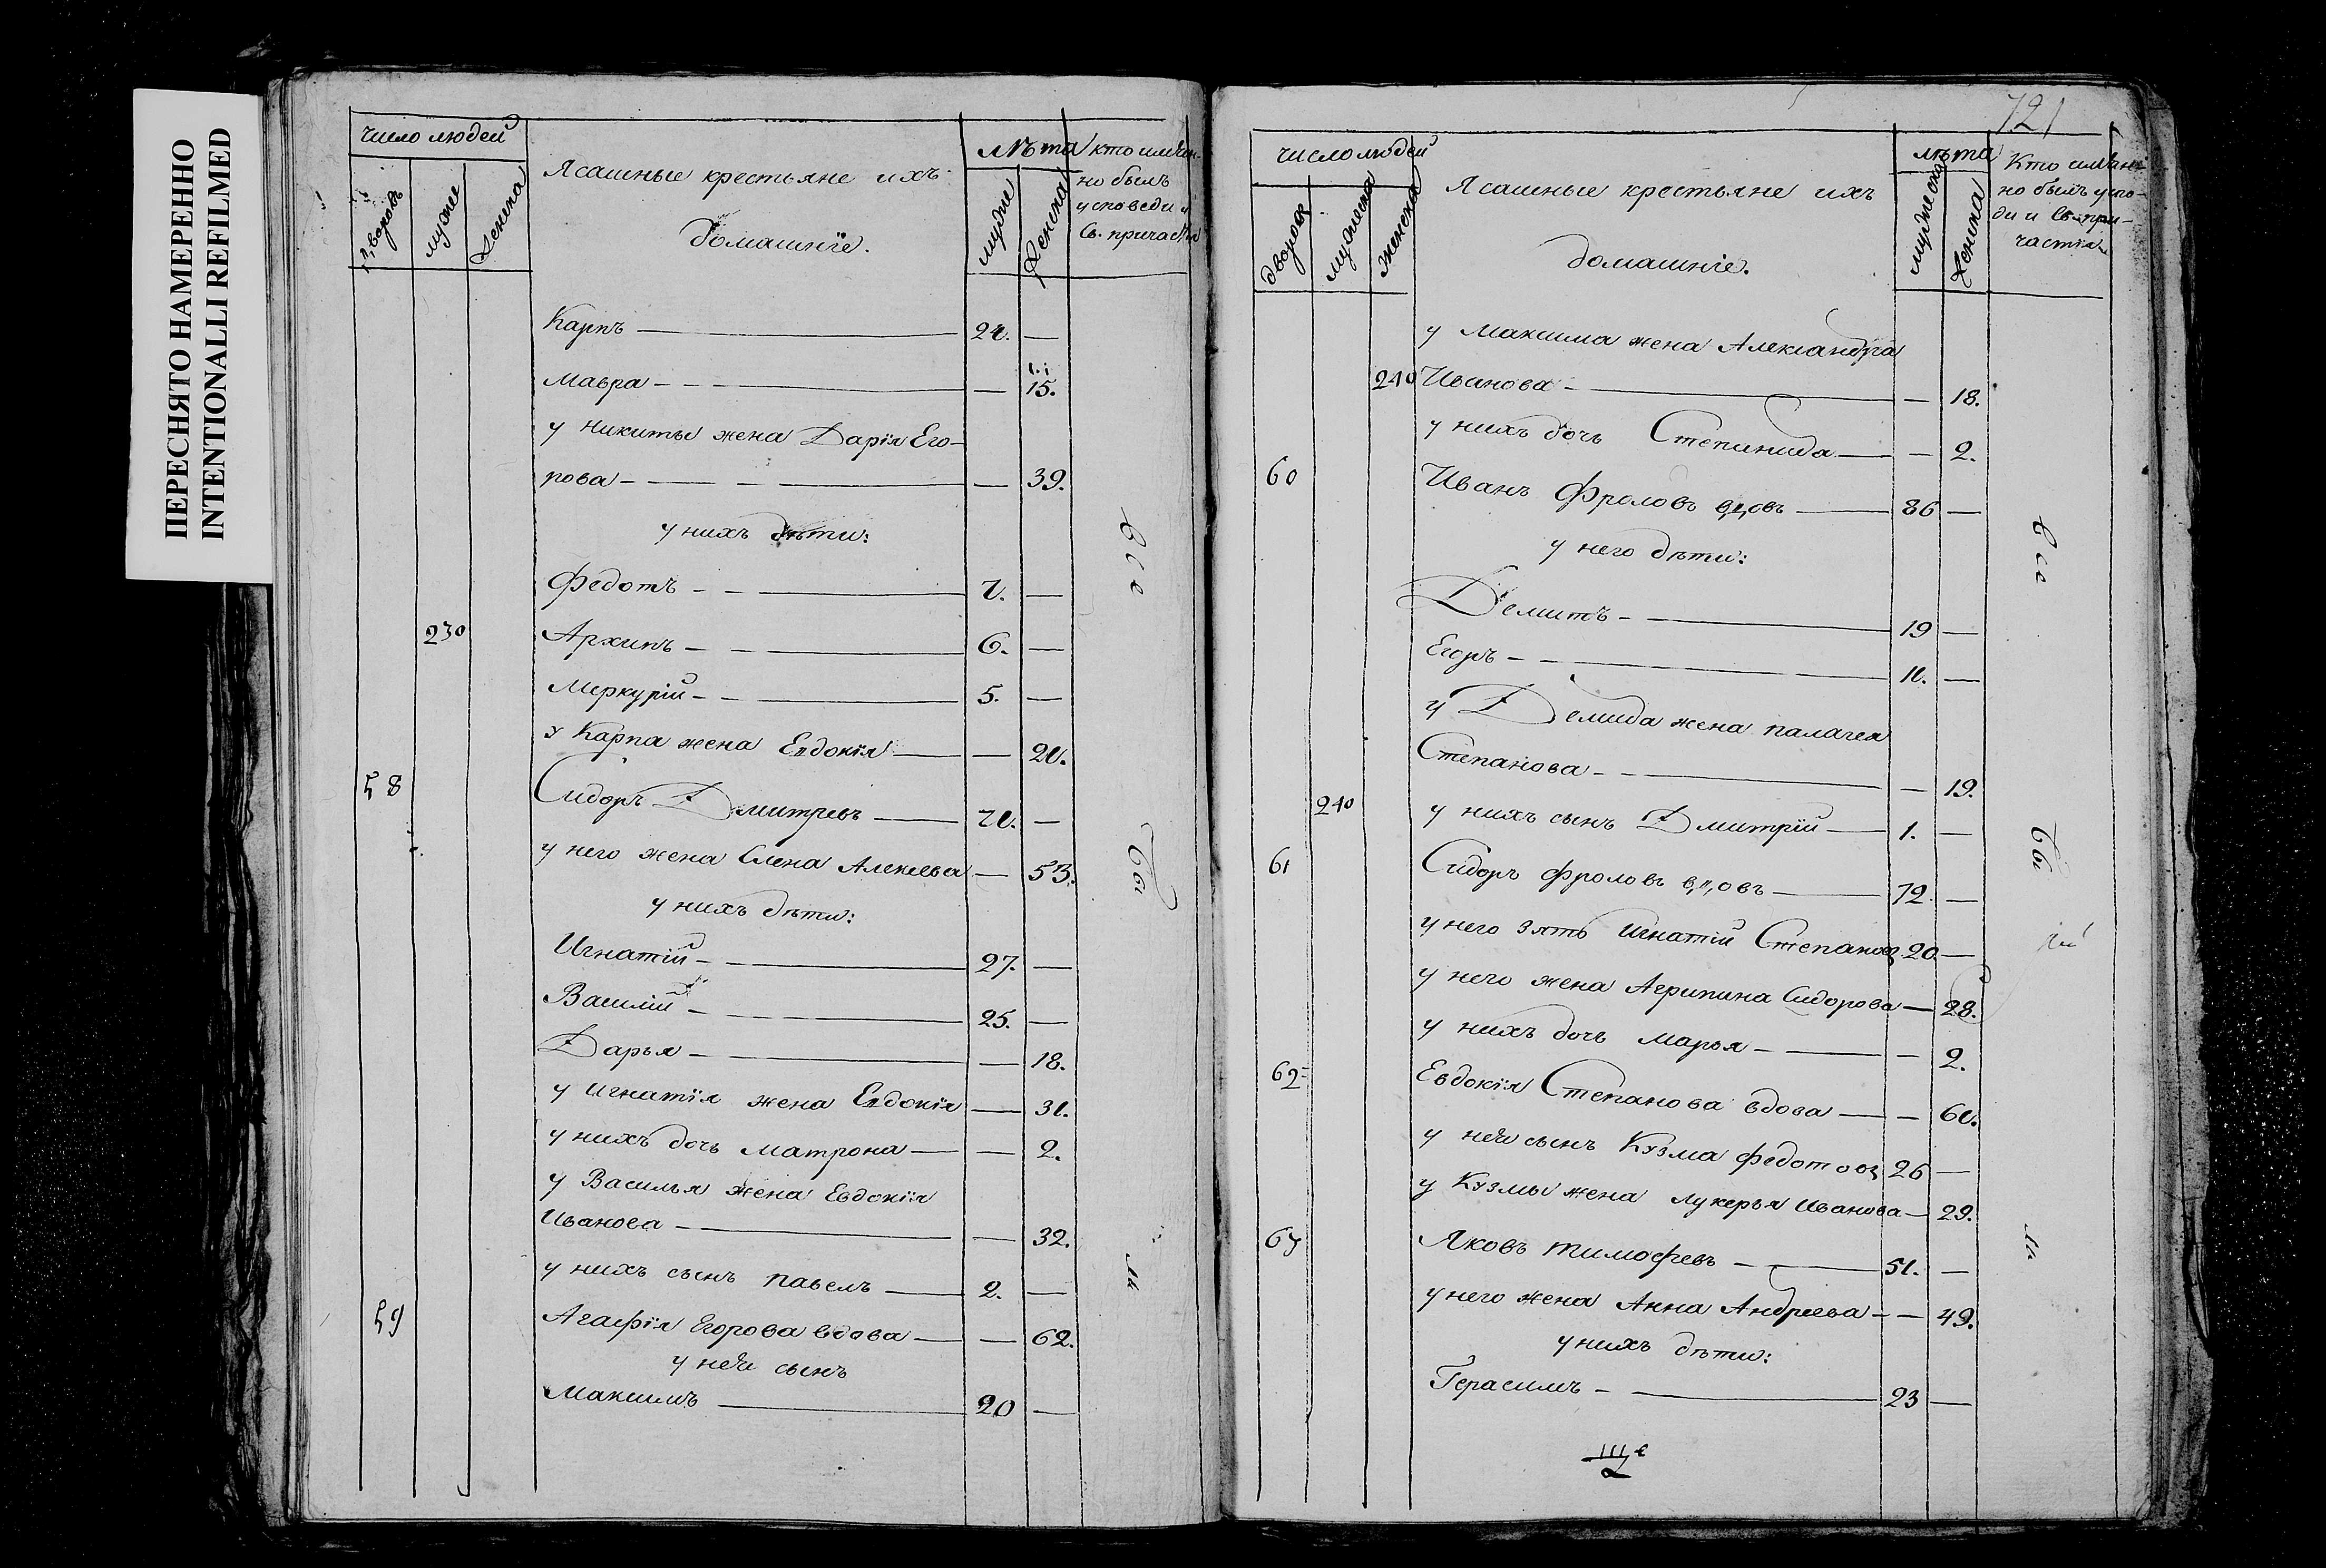 ПЕРЕСНЯТО НАМЕРЕННО
INTENTIONALLI REFILMED
число людей
дворовъ
мужес
Женска
Ясашные крестьяне ихъ
домашніе.
лѣта
мужес
Женска
кто имян-
но былъ
у споведи и
Св. причастія
Карпъ 21. —
Мавра — 15.
у Никиты жена Дарія Его-
рова — 39.
у нихъ дѣти:
Федотъ 7. —
230 Архипъ 6. —
Меркурій 5. —
у Карпа жена Евдокія — 21.
58 Сидоръ Дмитревъ 71. —
у него жена Елена Алексѣева — 53.
у нихъ дѣти:
Игнатій 27. —
Василій 25. —
Дарья — 18.
у Игнатія жена Евдокія — 31.
у нихъ дочь Матрона — 2.
у Василья жена Евдокія
Иванова — 32.
у нихъ сынъ Павелъ 2. —
59 Агафія Егорова вдова — 62.
у неи сынъ
Максимъ 20 —
Всѣ
бы
ли
721
число людей
дворовъ
мужеска
Женска
Ясашные крестьяне ихъ
домашніе.
лѣта
мужеска
Женска
Кто имян-
но былъ у спо-
ди и Св. при-
частія
у Максима жена Александра
210 Иванова — 18.
у нихъ дочь Степанида — 2.
60 Иванъ Фроловъ вдовъ 86 —
у него дѣти:
Демитъ 19 —
Егоръ 11. —
у Демида жена Палагея
Степанова — 19.
240 у нихъ сынъ Дмитрій 1. —
61 Сидоръ Фроловъ вдовъ 72. —
у него зять Игнатій Степановъ 20 —
у него жена Агрипина Сидорова — 28.
у нихъ дочь Марья — 2.
62 Евдокія Степанова вдова — 61.
у неи сынъ Кузма Федотовъ 26 —
у Кузмы жена Лукерья Иванова — 29.
63 Яковъ Тимофевъ 51. —
у него жена Анна Андреева — 49.
у нихъ дѣти:
Герасимъ 23 —
Всѣ
бы
ли